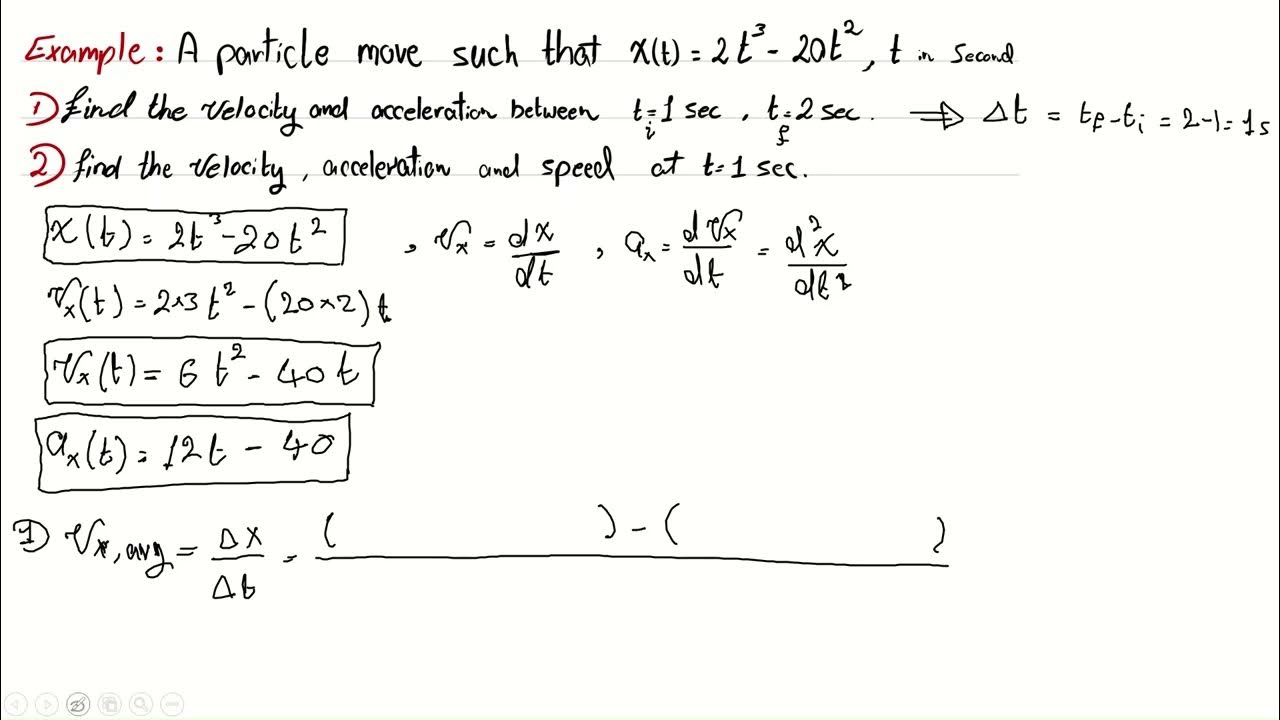 Example: A particle move such that x(t) = 2t³ - 20t², t in second
1) find the velocity and acceleration between tᵢ=1 sec, t_f=2 sec. ⟹ Δt = t_f - tᵢ = 2-1 = 1s
2) find the velocity, acceleration and speed at t=1 sec.
x(t) = 2t³ - 20t² , Vx = dx/dt , ax = dVx/dt = d²x/dt²
Vx(t) = 2×3 t² - (20×2) t
Vx(t) = 6 t² - 40 t
ax(t) = 12t - 40
1) Vx,avg = Δx/Δt = ( ) - ( )